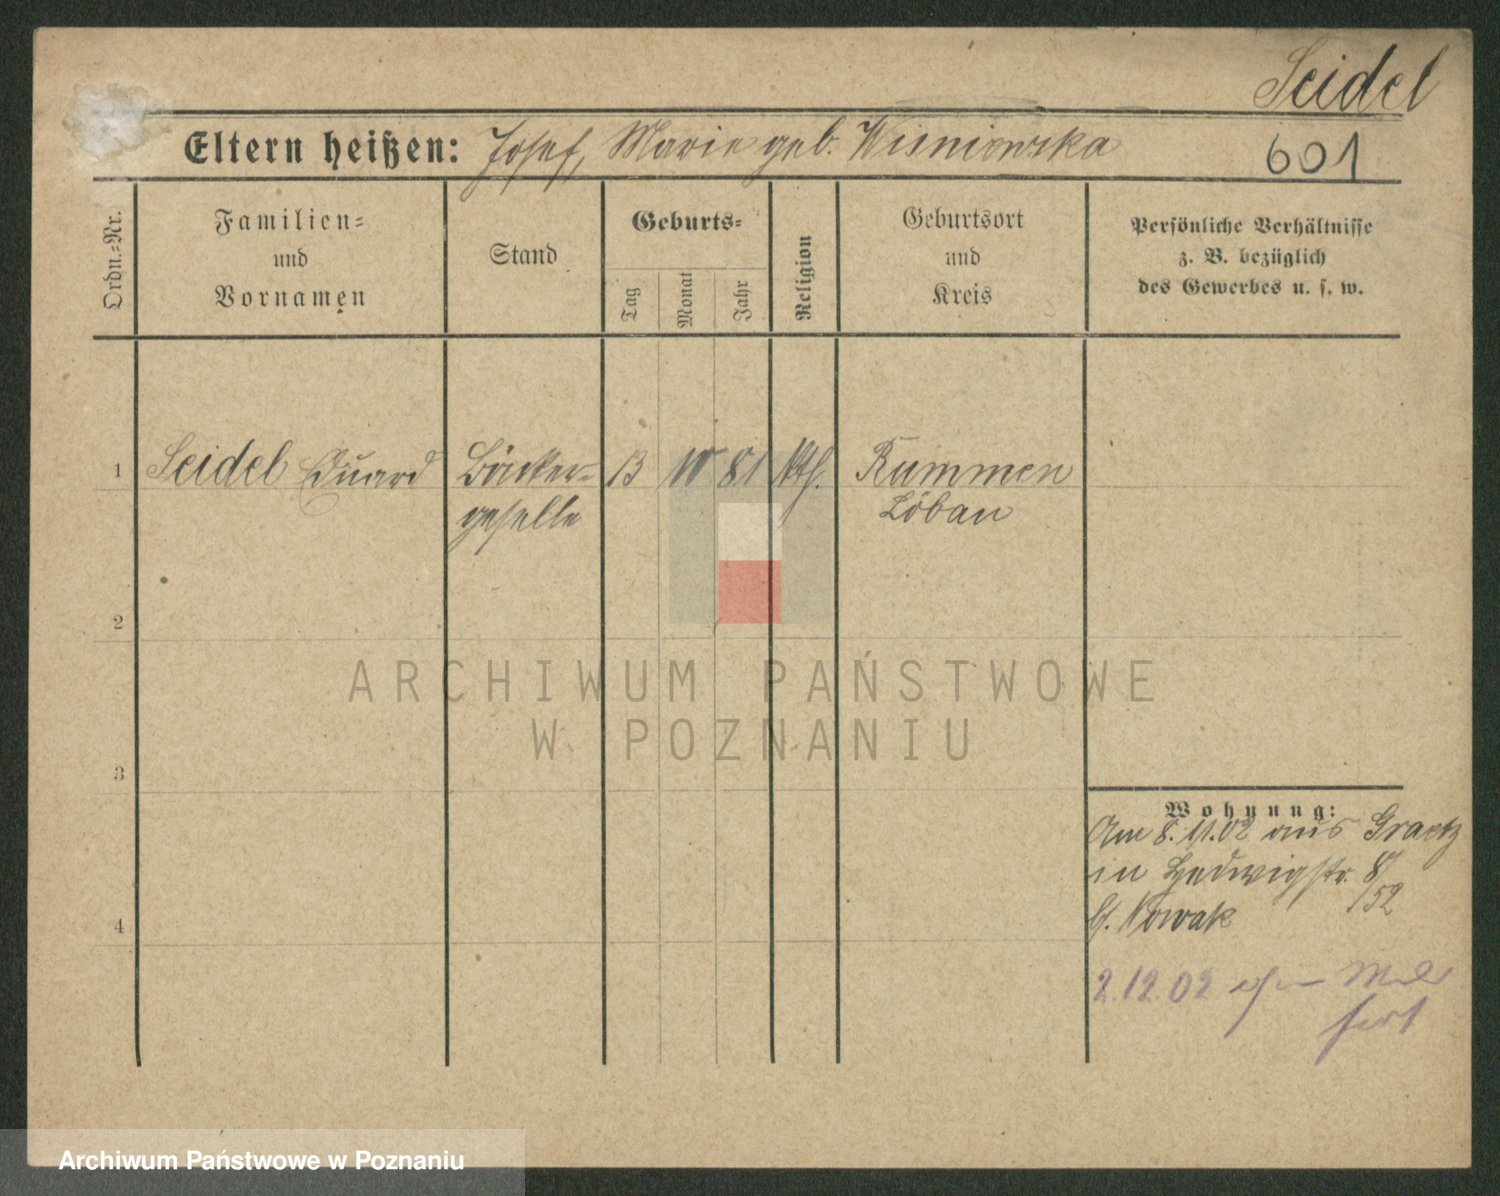 Seidel
Eltern heißen: Josef, Marie geb. Wisniewska
601
Ordn.-Nr.
Familien-
und
Vornamen
Stand
Geburts-
Tag
Monat
Jahr
Religion
Geburtsort
und
Kreis
Persönliche Verhältnisse
z. B. bezüglich
des Gewerbes u. s. w.
1 Seidel Eduard Bäcker- 13 10 81 kth. Rummen
geselle Löbau
2
ARCHIWUM PAŃSTWOWE
W POZNANIU
3
Wohnung:
Am 8.11.02 aus Graetz
in Hedwigstr. 8/52
b. Nowak
4
2.12.02
fort
Archiwum Państwowe w Poznaniu